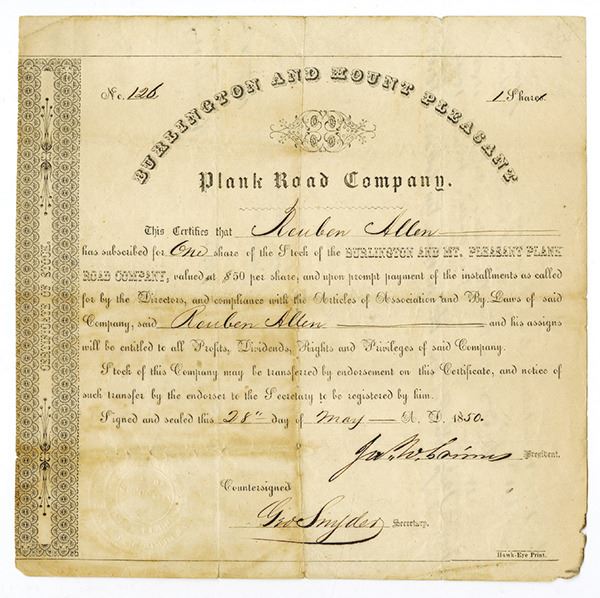 No. 126
1 Share
BURLINGTON AND MOUNT PLEASANT
Plank Road Company.
This Certifies that Reuben Allen
has subscribed for One share of the Stock of the BURLINGTON AND MT. PLEASANT PLANK
ROAD COMPANY, valued at $50 per share, and upon prompt payment of the installments as called
for by the Directors, and compliance with the Articles of Association and By-Laws of said
Company, said Reuben Allen and his assigns
will be entitled to all Profits, Dividends, Rights and Privileges of said Company.
Stock of this Company may be transferred by endorsement on this Certificate, and notice of
such transfer by the endorser to the Secretary to be registered by him.
Signed and sealed this 28" day of May A. D. 1850.
Jas. W. Grimes President.
Countersigned
Geo Snyder Secretary.
Hawk-Eye Print.
CERTIFICATE OF STOCK.